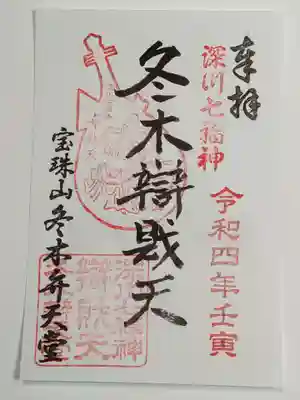 奉拝
深川七福神
令和四年壬寅
冬木辯財天
宝珠山冬木弁天堂